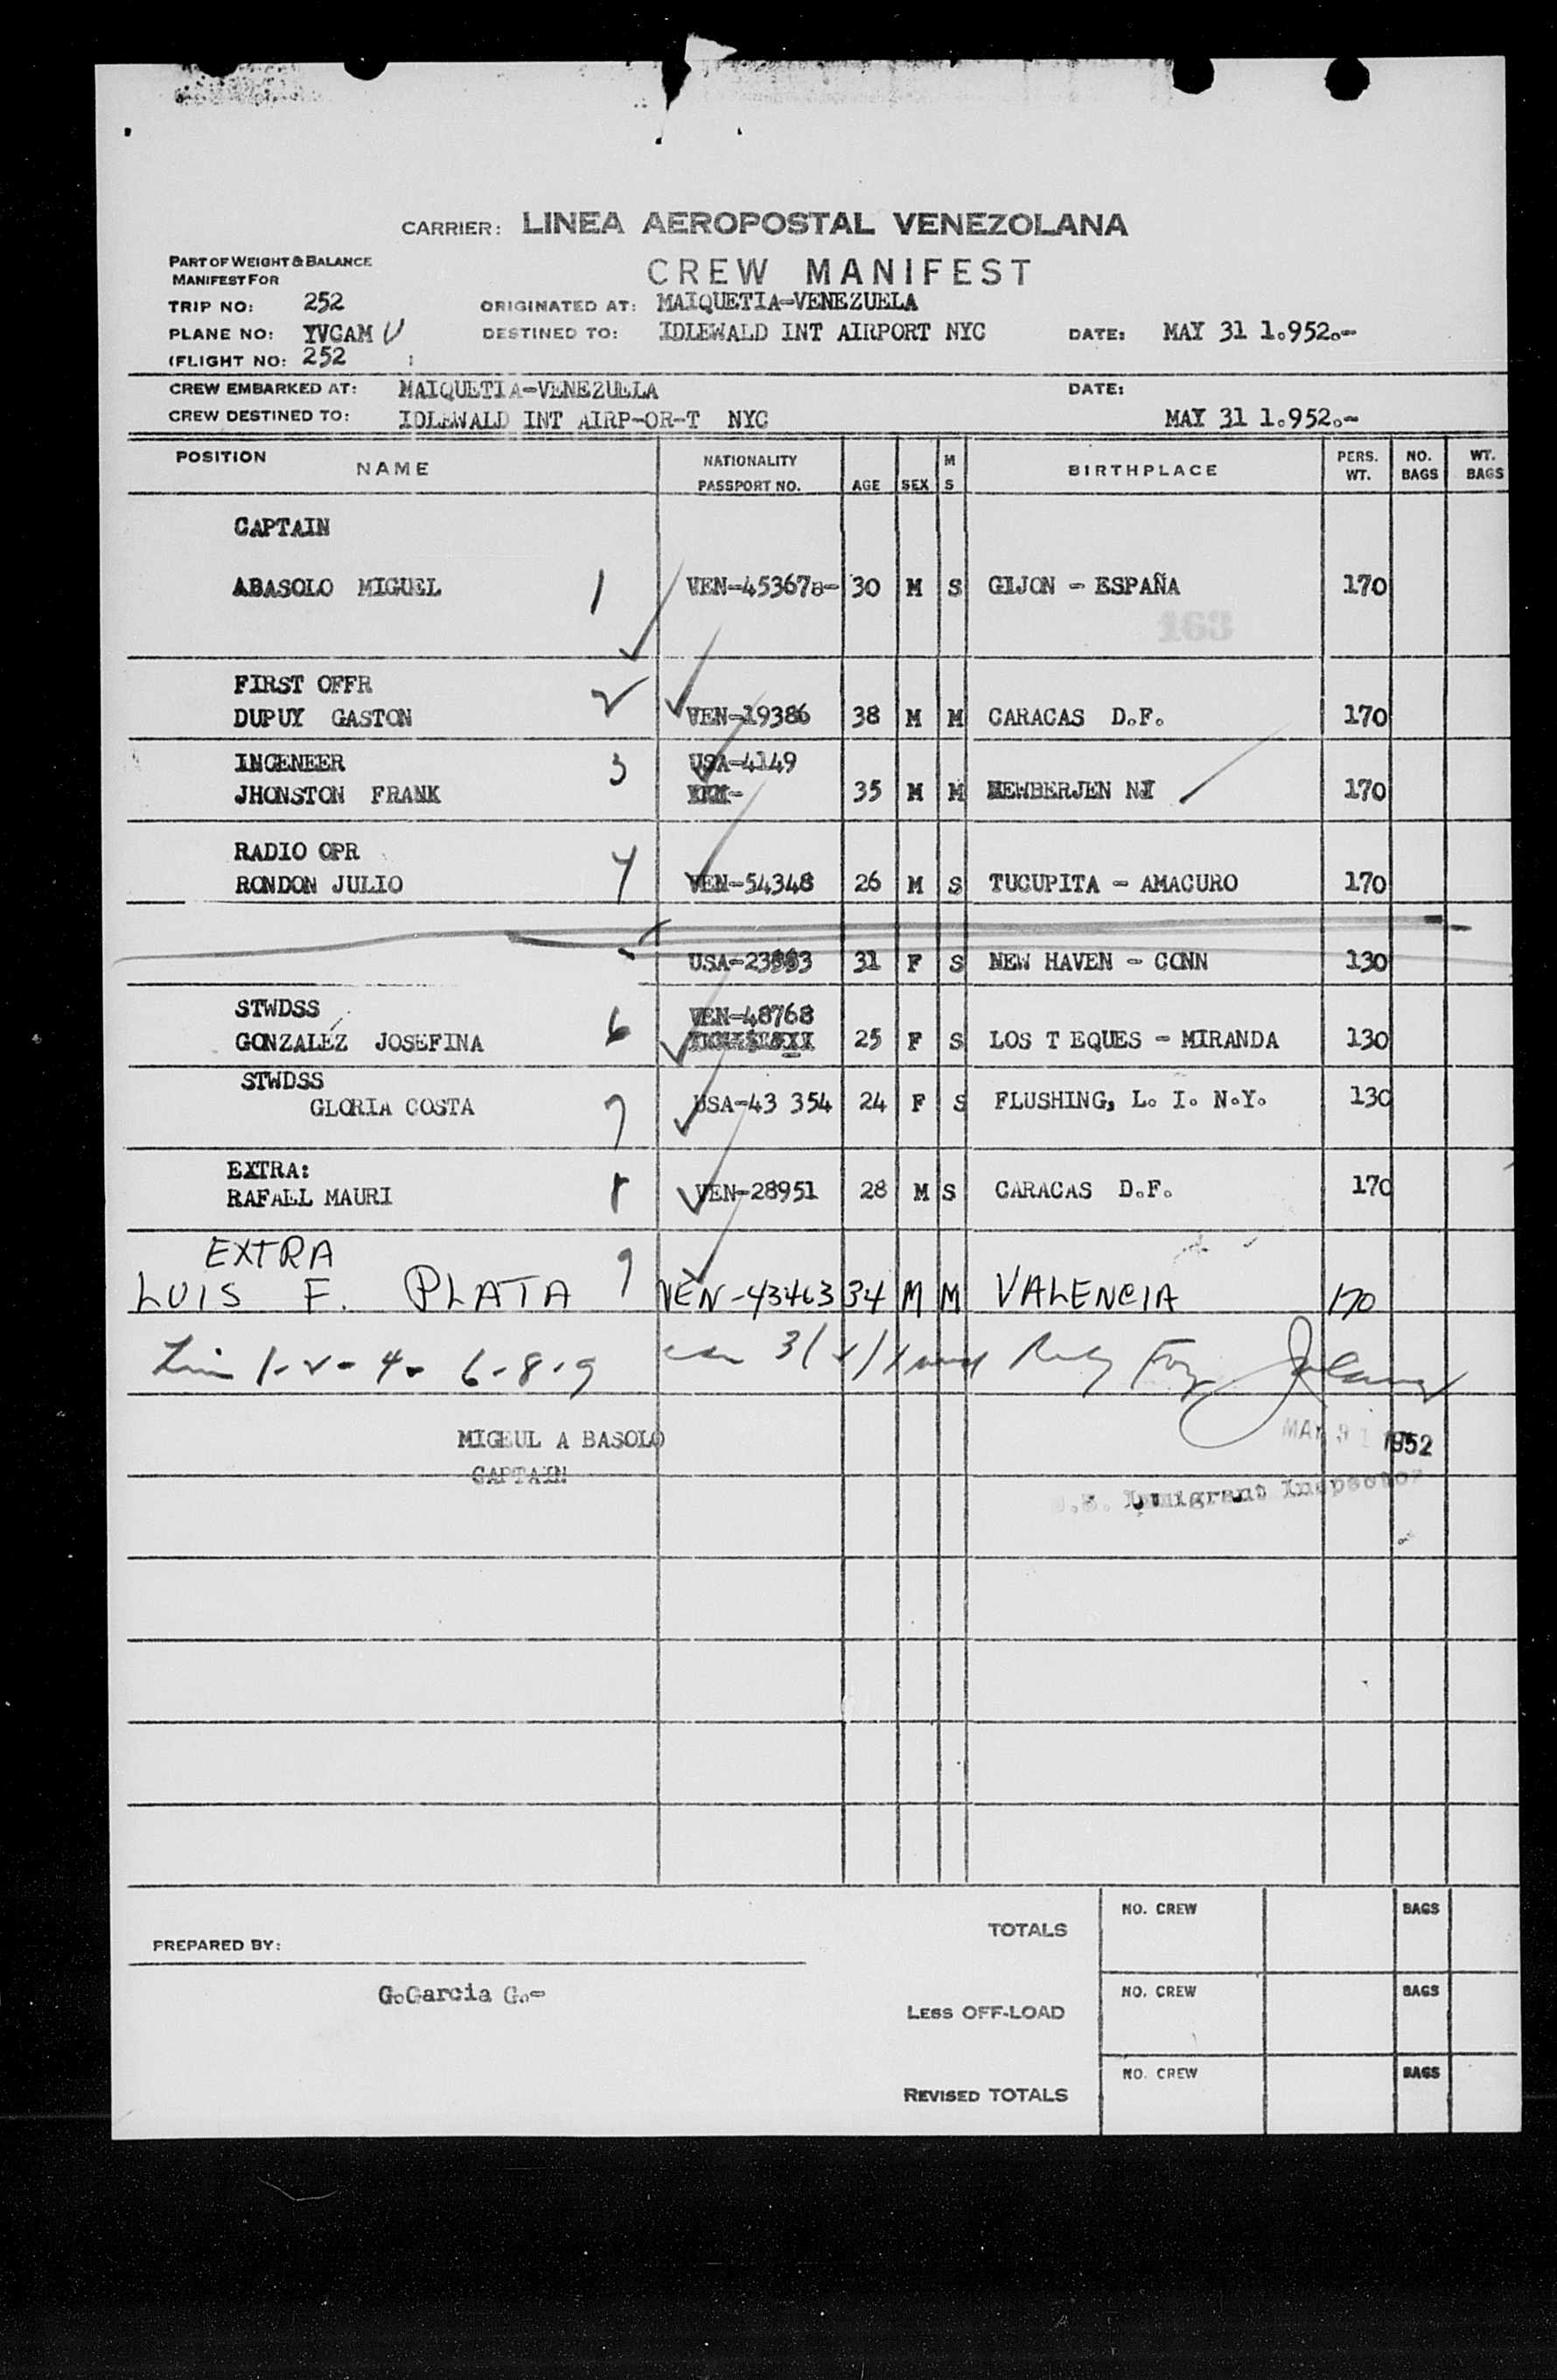 CARRIER: LINEA AEROPOSTAL VENEZOLANA
PART OF WEIGHT & BALANCE
MANIFEST FOR
CREW MANIFEST
TRIP NO: 252 ORIGINATED AT: MAIQUETIA-VENEZUELA
PLANE NO: YVCAM U DESTINED TO: IDLEWALD INT AIRPORT NYC DATE: MAY 31 1.952.-
(FLIGHT NO: 252 :
CREW EMBARKED AT: MAIQUETIA-VENEZUELA DATE:
CREW DESTINED TO: IDLEWALD INT AIRP-OR-T NYC MAY 31 1.952.-
POSITION NAME NATIONALITY PASSPORT NO. AGE SEX M S BIRTHPLACE PERS. WT. NO. BAGS WT. BAGS
CAPTAIN
ABASOLO MIGUEL 1 VEN-45367 30 M S GIJON - ESPAÑA 170
163
FIRST OFFR
DUPUY GASTON 2 VEN-19386 38 M M CARACAS D.F. 170
INGENEER 3 USA-4149
JHONSTON FRANK 35 M M NEWBERJEN NJ 170
RADIO OPR
RONDON JULIO 4 VEN-54348 26 M S TUCUPITA - AMACURO 170
31 F S NEW HAVEN - CONN 130
STWDSS VEN-48768
GONZALEZ JOSEFINA 6 25 F S LOS T EQUES - MIRANDA 130
STWDSS
GLORIA COSTA 7 USA-43 354 24 F S FLUSHING, L. I. N.Y. 130
EXTRA:
RAFAEL MAURI 8 VEN-28951 28 M S CARACAS D.F. 170
EXTRA
LUIS F. PLATA 9 VEN-43463 34 M M VALENCIA 170
1-2-4-6-8-9
MIGEUL A BASOLO
CAPTAIN
MAY 31 1952
U.S. Immigrant Inspector
PREPARED BY:
G.Garcia G.-
TOTALS NO. CREW BAGS
LESS OFF-LOAD NO. CREW BAGS
REVISED TOTALS NO. CREW BAGS